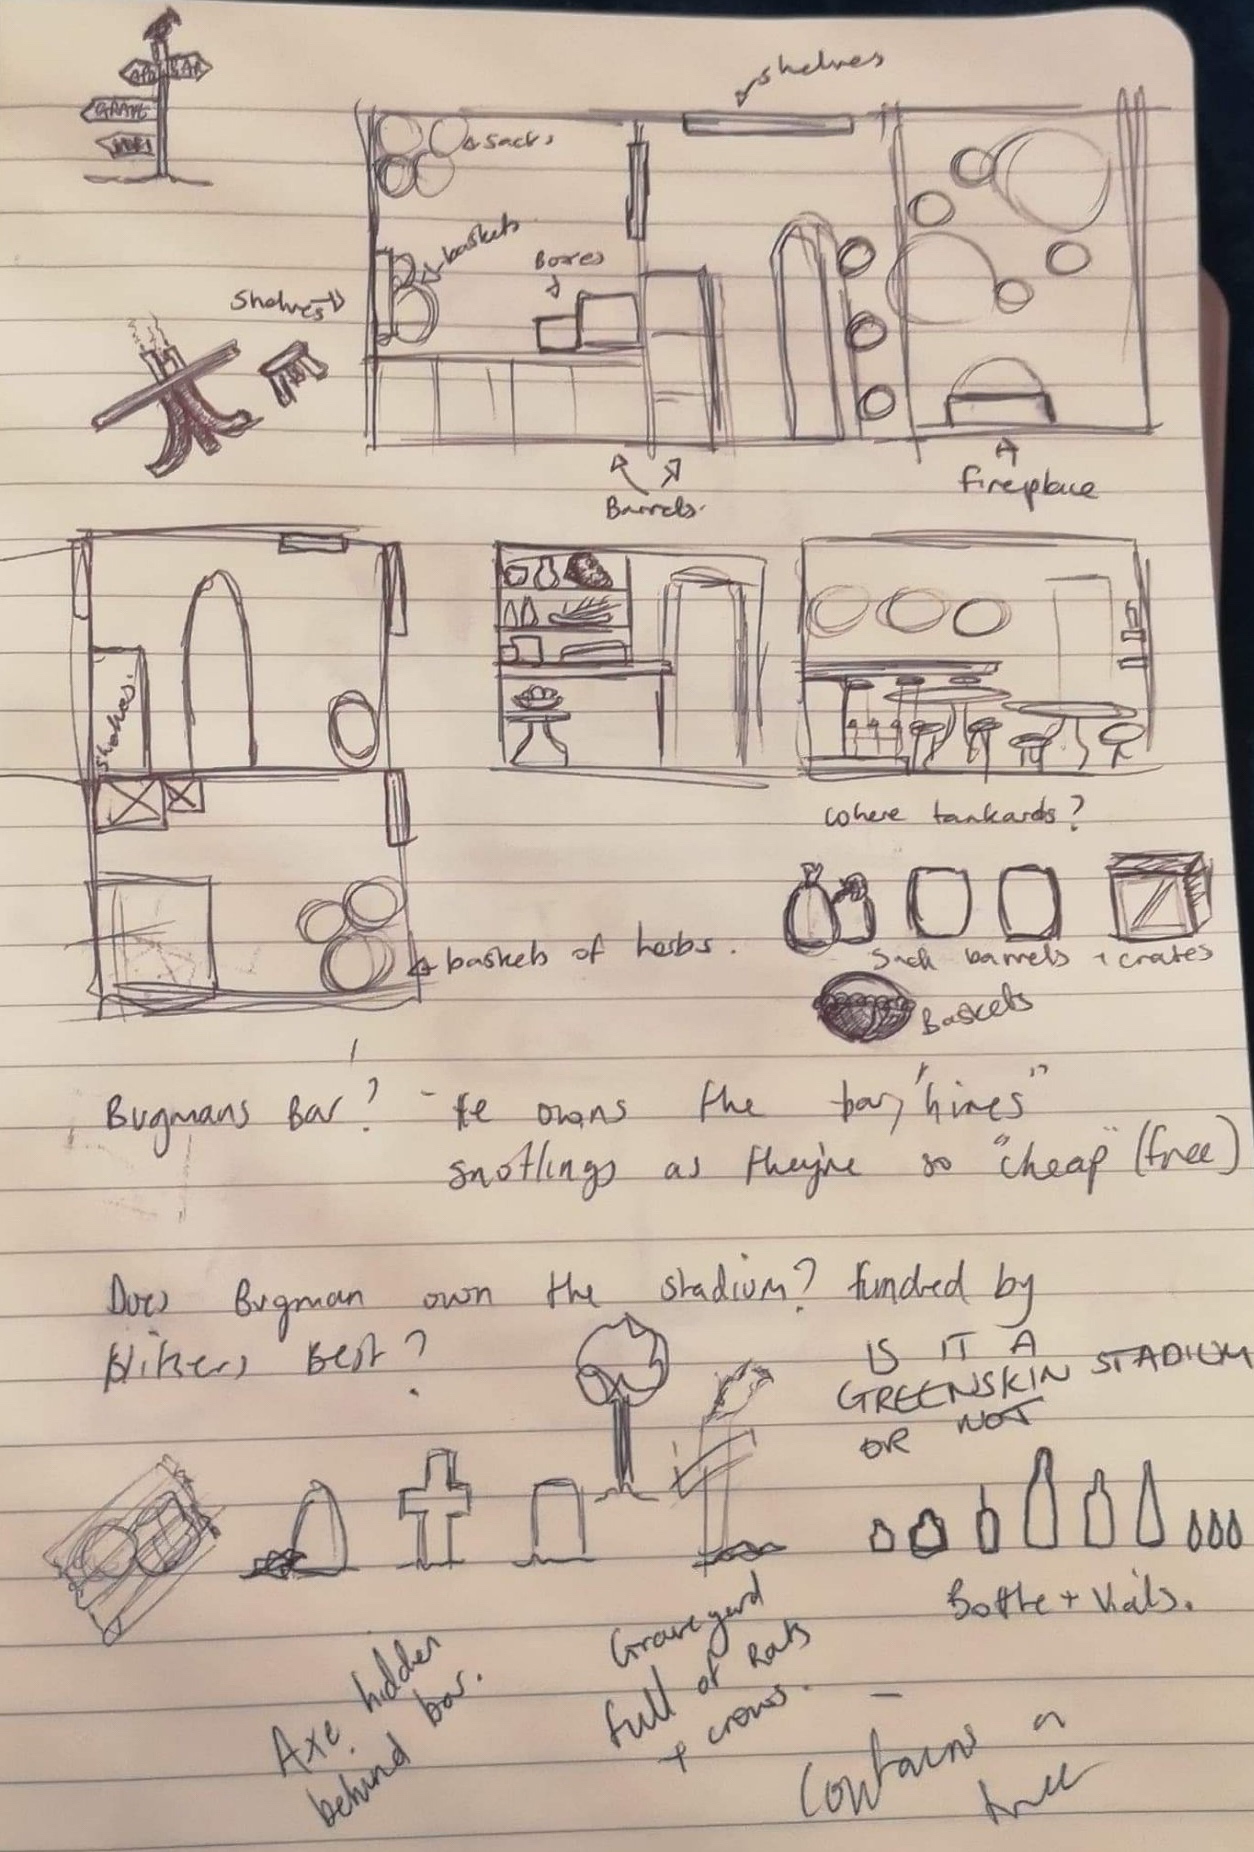 BAR
GRAVE
shelves
sacks
baskets
Boxes
shelves
Barrels
fireplace
shelves
where tankards?
baskets of herbs.
sack barrels + crates
Baskets
Bugmans Bar? - He owns the bar, "hires"
snotlings as they're so "cheap" (free)
Does Bugman own the stadium? funded by
Blitzers Best?
IS IT A
GREENSKIN STADIUM
OR NOT
Bottle + Vials.
Axe hidden
behind bar.
Graveyard
full of Rats
+ crows.
- Contains a
tree